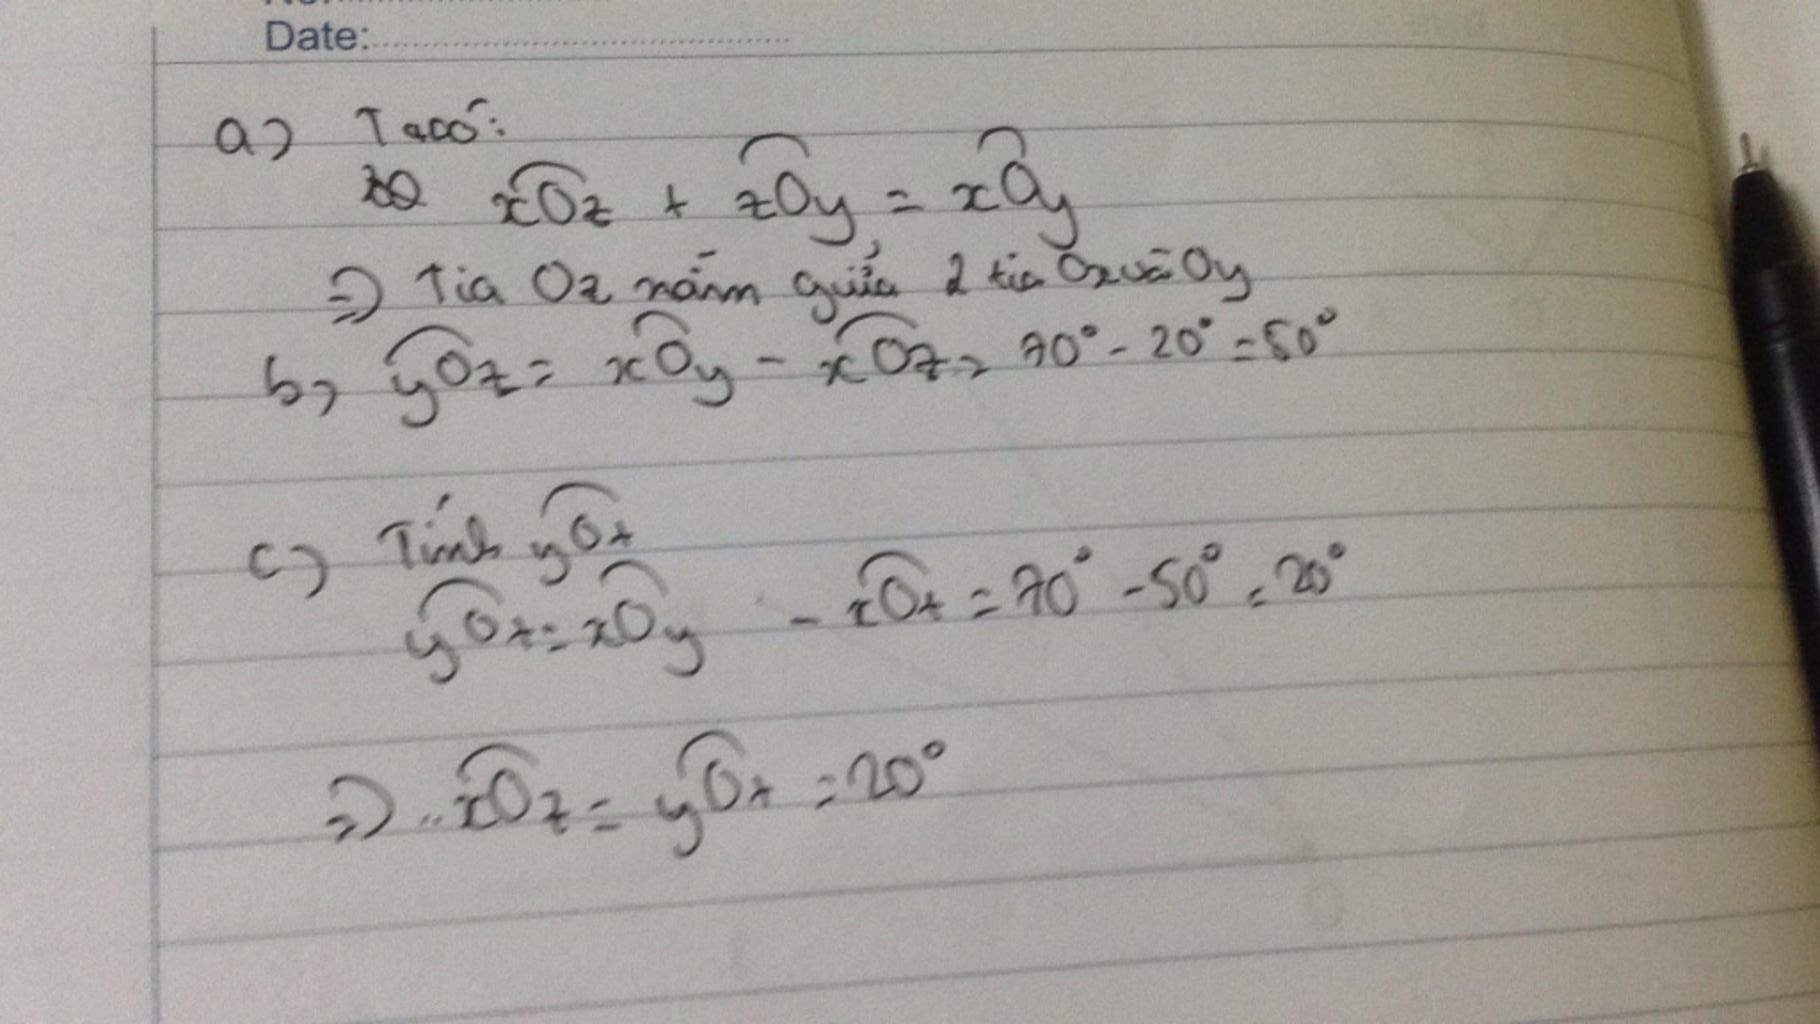 Date:
a) Ta có:
xOz + zOy = xOy
=> Tia Oz nằm giữa 2 tia Ox và Oy
b, yOz = xOy - xOz = 70° - 20° = 50°
c) Tính yOt
yOt = xOy - xOt = 70° - 50° = 20°
=> .. xOz = yOt = 20°